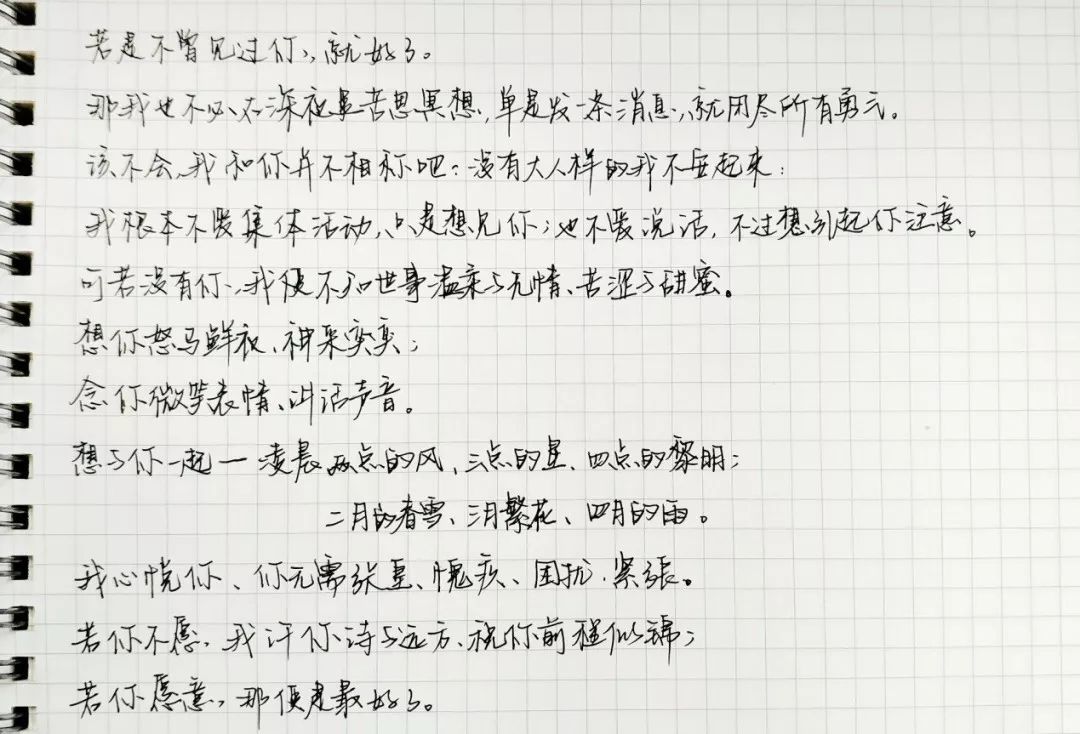 若是不曾见过你,就好了。
那我也不必在深夜里苦思冥想,单是发一条消息,就用尽所有勇气。
该不会,我和你并不相称吧:没有大人样的我不安起来:
我根本不爱集体活动,只是想见你;也不爱说话,不过想引起你注意。
可若没有你,我便不知世事温柔与无情、苦涩与甜蜜。
想你怒马鲜衣、神采奕奕;
念你微笑表情、讲话声音。
想与你一起一凌晨两点的风、三点的星、四点的黎明;
二月的春雪、三月繁花、四月的雨。
我心悦你、你无需张皇、愧疚、困扰、紧张。
若你不愿,我许你诗与远方、祝你前程似锦;
若你愿意,那便是最好了。